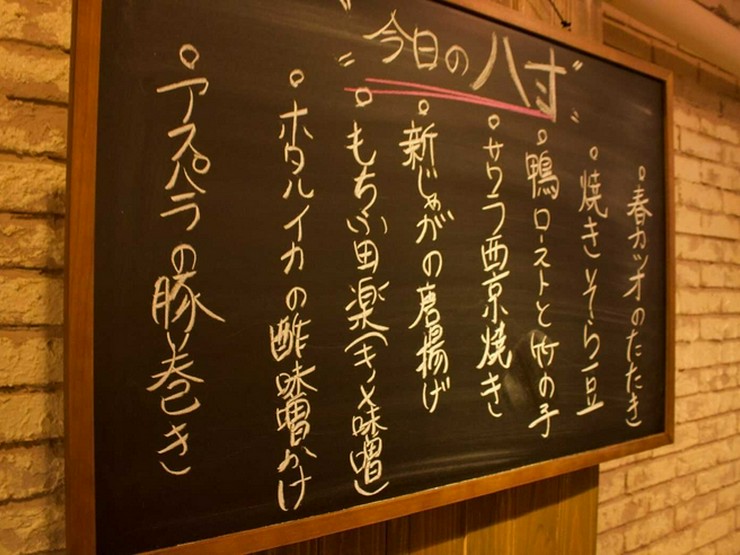 "今日の八寸"
○春カツオのたたき
○焼きそら豆
○鴨ローストと竹の子
○サワラ西京焼き
○新じゃがの唐揚げ
○もちふ田楽(キノメ味噌)
○ホタルイカの酢味噌かけ
○アスパラの豚巻き